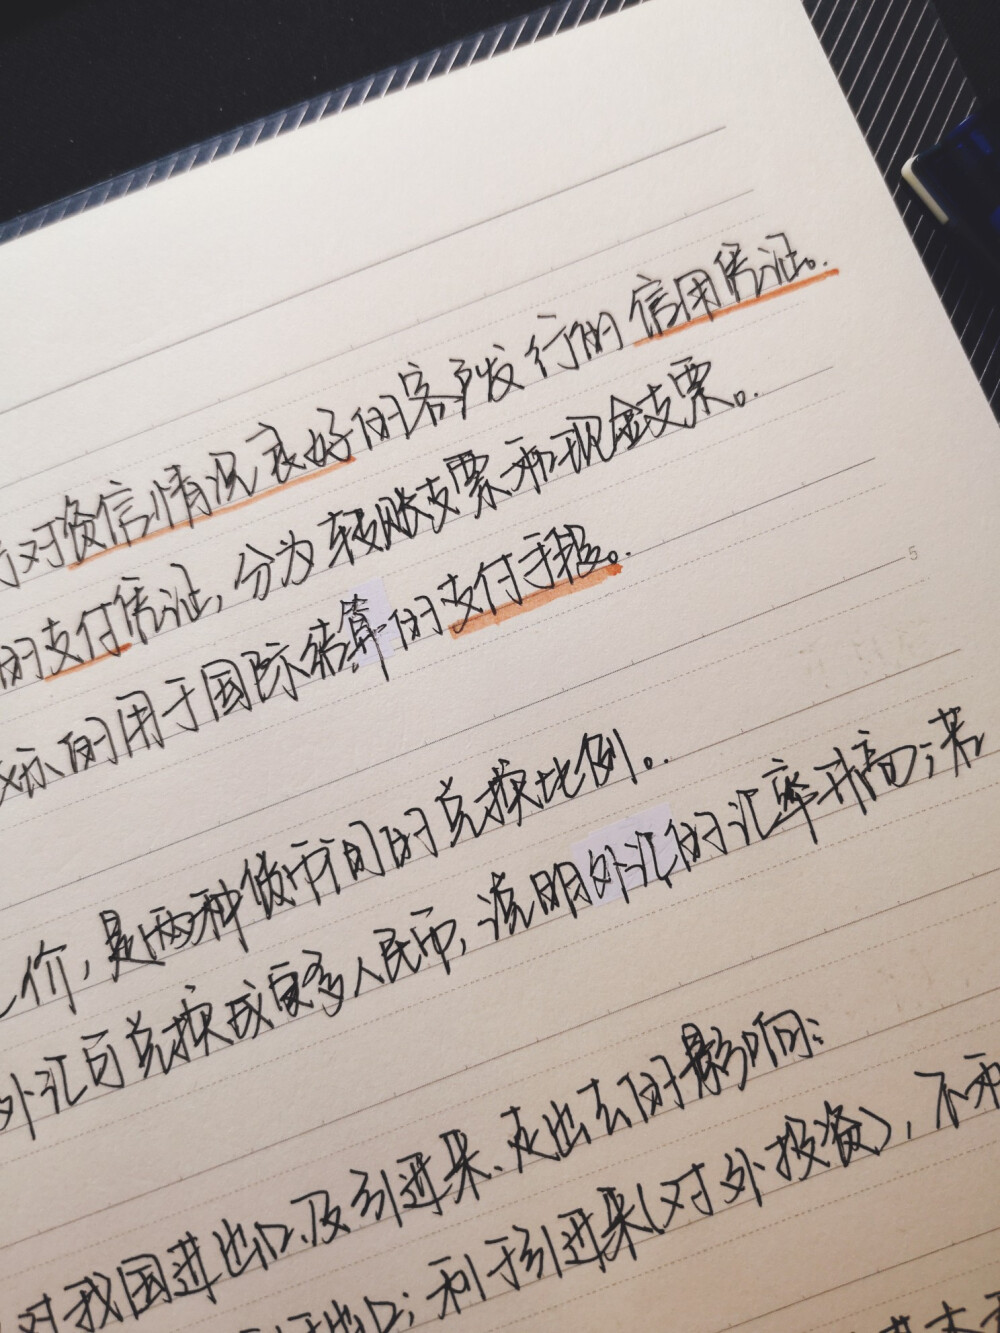 对资信情况良好的客户发行的信用凭证。
的支付凭证,分为转账支票和现金支票。
示的用于国际结算的支付手段。
5
价,是两种货币间的兑换比例。
外汇可兑换成更多人民币,说明外汇的汇率升高;若
对我国进出口及引进来、走出去的影响:
出口;利于引进来(对外投资),不